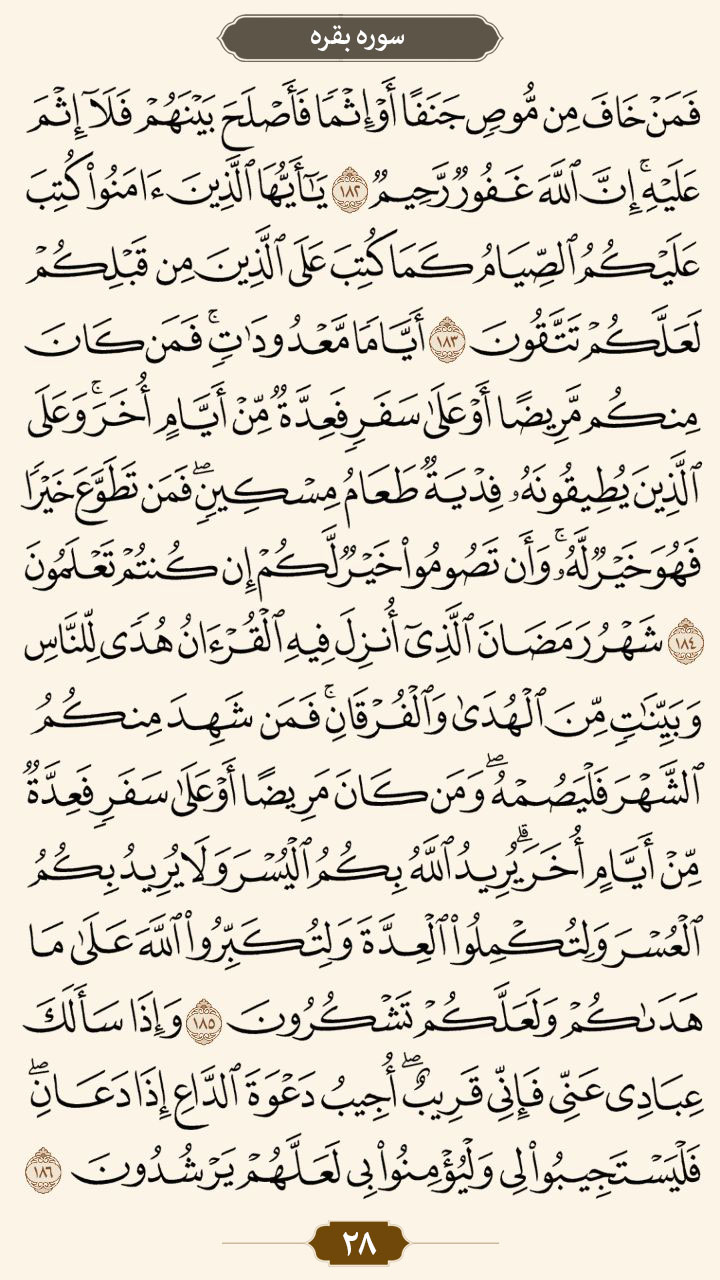 سوره بقره
فَمَنْ خَافَ مِن مُّوصٍ جَنَفًا أَوْ إِثْمًا فَأَصْلَحَ بَيْنَهُمْ فَلَآ إِثْمَ
عَلَيْهِ ۚ إِنَّ ٱللَّهَ غَفُورٌ رَّحِيمٌ ١٨٢ يَٰٓأَيُّهَا ٱلَّذِينَ ءَامَنُوا۟ كُتِبَ
عَلَيْكُمُ ٱلصِّيَامُ كَمَا كُتِبَ عَلَى ٱلَّذِينَ مِن قَبْلِكُمْ
لَعَلَّكُمْ تَتَّقُونَ ١٨٣ أَيَّامًا مَّعْدُودَٰتٍ ۚ فَمَن كَانَ
مِنكُم مَّرِيضًا أَوْ عَلَىٰ سَفَرٍ فَعِدَّةٌ مِّنْ أَيَّامٍ أُخَرَ ۚ وَعَلَى
ٱلَّذِينَ يُطِيقُونَهُۥ فِدْيَةٌ طَعَامُ مِسْكِينٍ ۖ فَمَن تَطَوَّعَ خَيْرًا
فَهُوَ خَيْرٌ لَّهُۥ ۚ وَأَن تَصُومُوا۟ خَيْرٌ لَّكُمْ إِن كُنتُمْ تَعْلَمُونَ
١٨٤ شَهْرُ رَمَضَانَ ٱلَّذِىٓ أُنزِلَ فِيهِ ٱلْقُرْءَانُ هُدًى لِّلنَّاسِ
وَبَيِّنَٰتٍ مِّنَ ٱلْهُدَىٰ وَٱلْفُرْقَانِ ۚ فَمَن شَهِدَ مِنكُمُ
ٱلشَّهْرَ فَلْيَصُمْهُ ۖ وَمَن كَانَ مَرِيضًا أَوْ عَلَىٰ سَفَرٍ فَعِدَّةٌ
مِّنْ أَيَّامٍ أُخَرَ ۗ يُرِيدُ ٱللَّهُ بِكُمُ ٱلْيُسْرَ وَلَا يُرِيدُ بِكُمُ
ٱلْعُسْرَ وَلِتُكْمِلُوا۟ ٱلْعِدَّةَ وَلِتُكَبِّرُوا۟ ٱللَّهَ عَلَىٰ مَا
هَدَىٰكُمْ وَلَعَلَّكُمْ تَشْكُرُونَ ١٨٥ وَإِذَا سَأَلَكَ
عِبَادِى عَنِّى فَإِنِّى قَرِيبٌ ۖ أُجِيبُ دَعْوَةَ ٱلدَّاعِ إِذَا دَعَانِ ۖ
فَلْيَسْتَجِيبُوا۟ لِى وَلْيُؤْمِنُوا۟ بِى لَعَلَّهُمْ يَرْشُدُونَ ١٨٦
٢٨